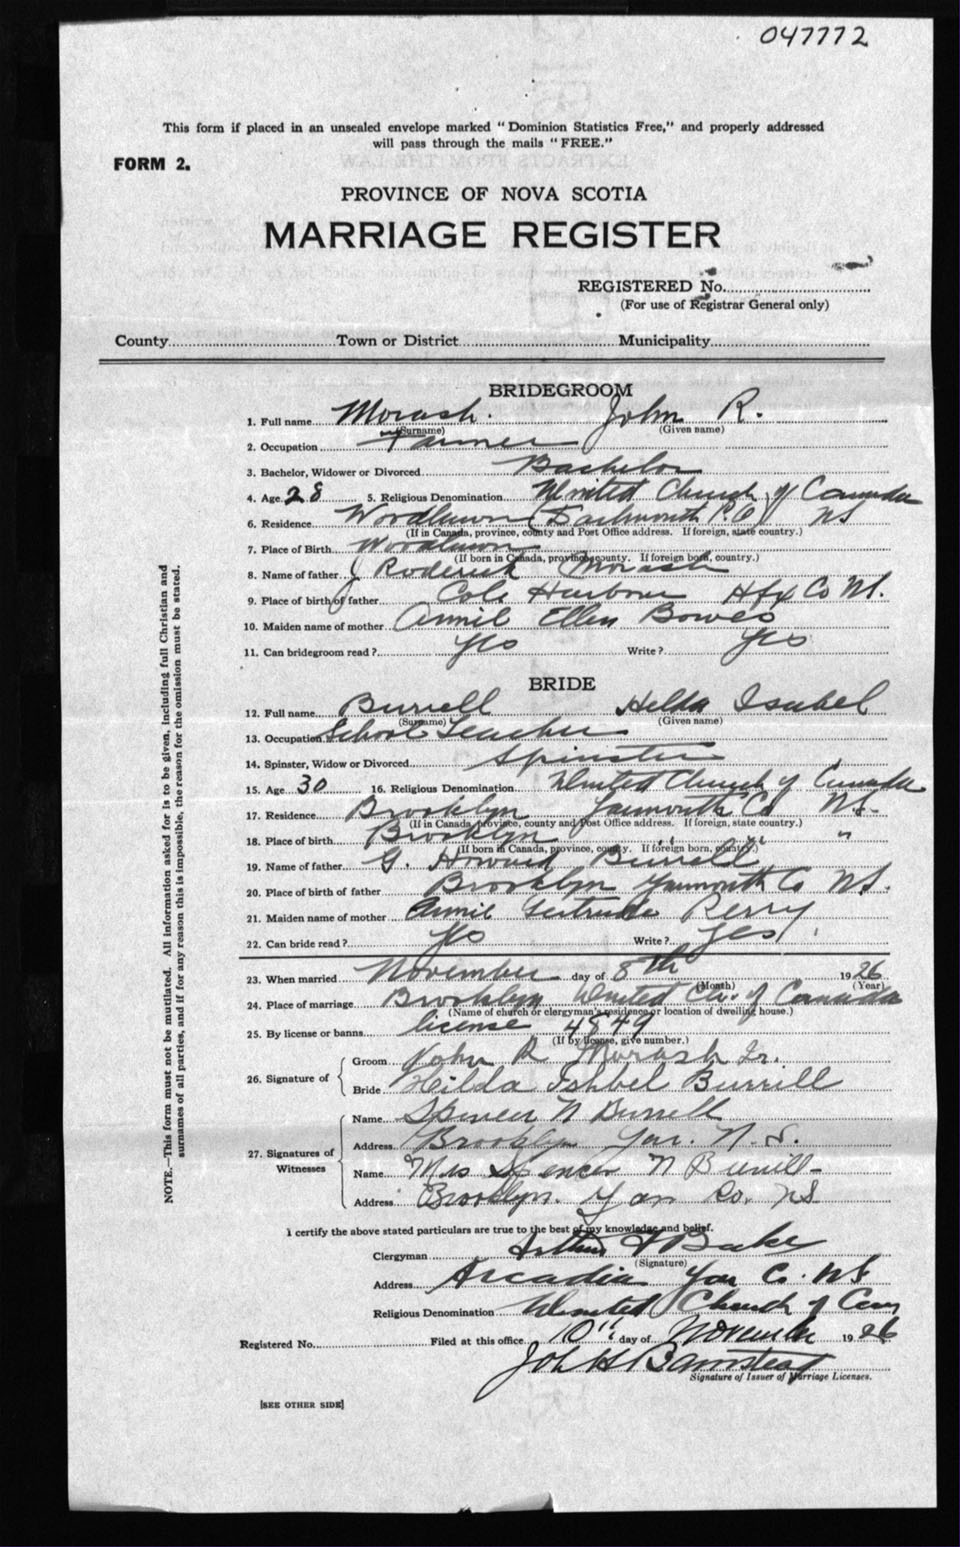 047772
This form if placed in an unsealed envelope marked "Dominion Statistics Free," and properly addressed
will pass through the mails "FREE."
FORM 2.
PROVINCE OF NOVA SCOTIA
MARRIAGE REGISTER
REGISTERED No.
(For use of Registrar General only)
County Town or District Municipality
BRIDEGROOM
1. Full name Morash. John R.
(Surname) (Given name)
2. Occupation Farmer
3. Bachelor, Widower or Divorced Bachelor
4. Age 28 5. Religious Denomination United Church of Canada
6. Residence Woodlawn (Dartmouth P.O) NS
(If in Canada, province, county and Post Office address. If foreign, state country.)
7. Place of Birth Woodlawn
(If born in Canada, province, county. If foreign born, country.)
8. Name of father J Roderick Morash
9. Place of birth of father Cole Harbour Hfx Co NS.
10. Maiden name of mother Annie Ellen Bowes
11. Can bridegroom read? Yes Write? Yes
BRIDE
12. Full name Burrell Hilda Isabel
(Surname) (Given name)
13. Occupation School Teacher
14. Spinster, Widow or Divorced Spinster
15. Age 30 16. Religious Denomination United Church of Canada
17. Residence Brooklyn Yarmouth Co NS.
(If in Canada, province, county and Post Office address. If foreign, state country.)
18. Place of birth Brooklyn " "
(If born in Canada, province, county. If foreign born, country.)
19. Name of father G. Howard Burrell
20. Place of birth of father Brooklyn Yarmouth Co NS.
21. Maiden name of mother Annie Gertrude Perry
22. Can bride read? Yes Write? Yes
23. When married November day of 8th 1926
(Month) (Year)
24. Place of marriage Brooklyn United Ch. of Canada
(Name of church or clergyman's residence or location of dwelling house.)
25. By license or banns license 4849
(If by license, give number.)
26. Signature of Groom John R Morash Jr.
Bride Hilda Ishbel Burrill
27. Signatures of Witnesses Name Spencer N Burrell
Address Brooklyn Yar. N.S.
Name Mrs Spencer N Burrill
Address Brooklyn. Yar Co. NS
I certify the above stated particulars are true to the best of my knowledge and belief.
Clergyman Arthur
(Signature)
Address Arcadia Yar Co. NS
Religious Denomination United Church of Can
Registered No. Filed at this office 10th day of November 1926
John H Bamstead
Signature of Issuer of Marriage Licenses.
[SEE OTHER SIDE]
NOTE.—This form must not be mutilated. All information asked for is to be given, including full Christian and
surnames of all parties, and if for any reason this is impossible, the reason for the omission must be stated.